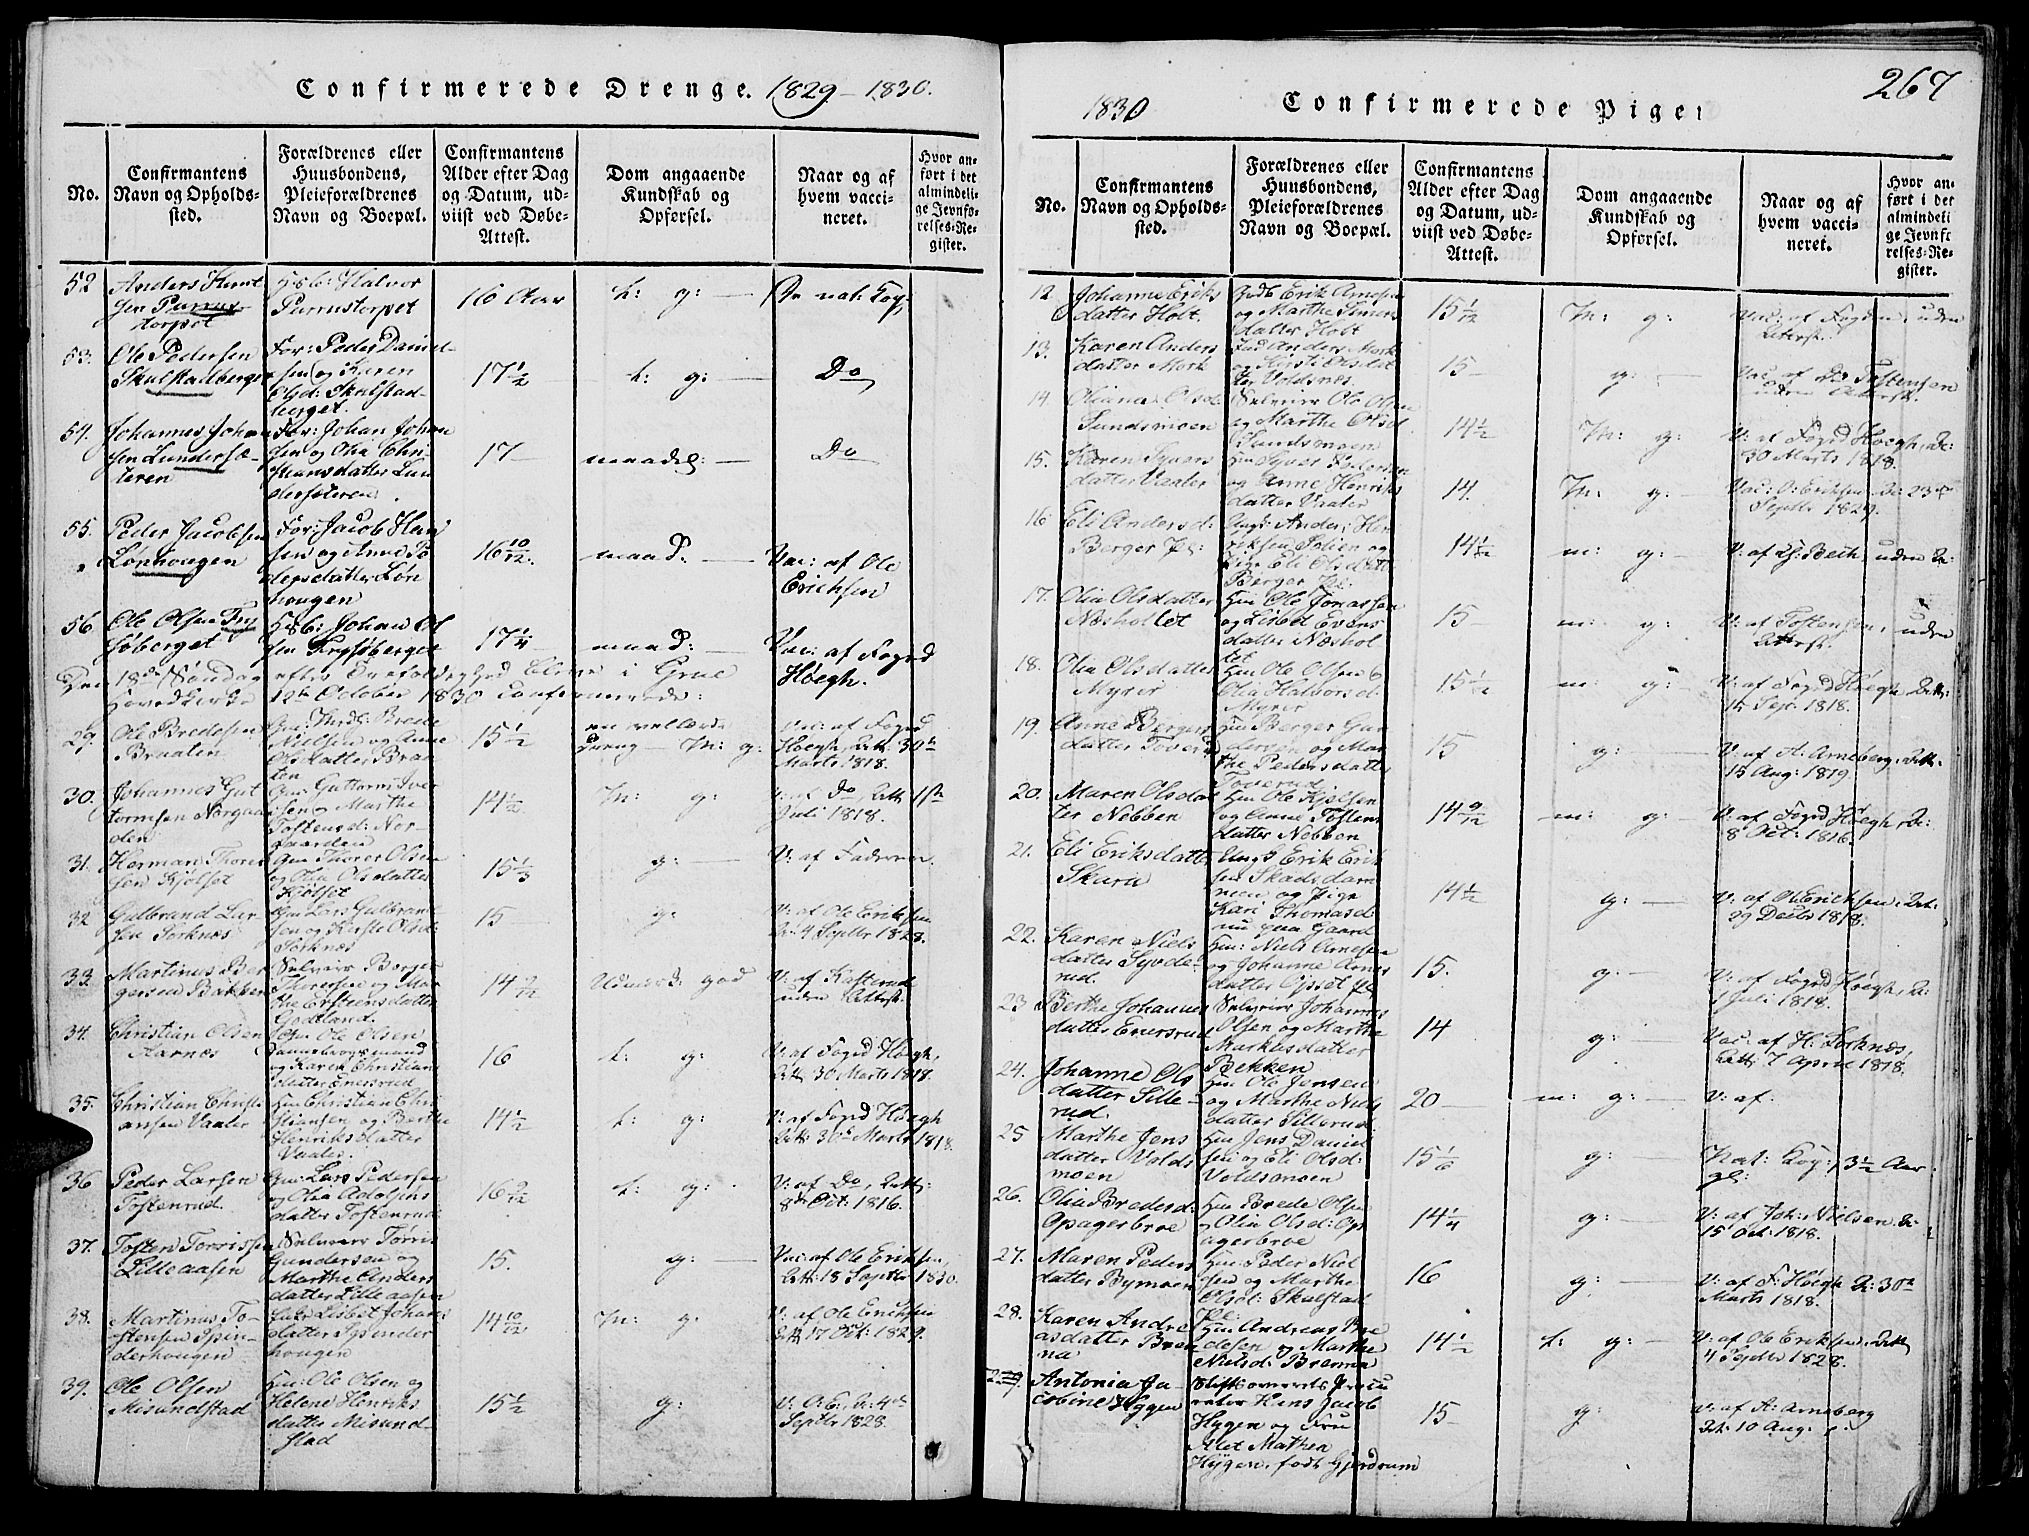 Confirmerede Drenge. 1829 - 1830.
No.
Confirmantens
Navn og Opholds-
sted.
Forældrenes eller
Huusbondens,
Pleieforældrenes
Navn og Boepæl.
Confirmantens
Alder efter Dag
og Datum, ud-
viist ved Døbe-
Attest.
Dom angaaende
Kundskab og
Opførsel.
Naar og af
hvem vacci-
neret.
Hvor an-
ført i det
almindeli-
ge Jevnfø-
relses-Re-
gister.
52
Anders
sen Purrus
torpet
Hsb: Halvor
Purrustorpet
16 Aar
t: g:
nat: Kop:
53.
Ole Pedersen
Skulstadberget
For: Peder Daniel-
sen og Karen
Olsd: Skulstad-
berget.
17 1/2
t: g:
Do
54.
Johannes Johan
sen Lundersæ-
teren
For: Johan Johan
sen og Olia Chri-
stiansdatter Lun
dersæteren.
17
maadel:
Do
55.
Peder Jacobsen
Lønhougen
For: Jacob Han
sen og Anne Pe
dersdatter Løn
hougen
16 10/12.
maad:
Vac: af Ole
Erichsen
56
Ole Olsen Fry
søberget
Hsb: Johan Ol
sen Frysøberget
17 1/4
maad:
Vac: af Fogrd
Høegh.
Den 18de Søndag efter Trefoldighed blev i Grue
Hovedkirke 12te October 1830 confirmerede:
29.
Ole Bredesen
Braaten
Brede
Nielsen og Anne
Olsdatter Braa
ten
15 1/2
en vellærd
Dreng M: g:
Vac: af Fogrd
Høegh, Att: 30te
Marts 1818.
30.
Johannes Gut
tormsen Norgaar
den
Gm: Guttorm Iver
sen og Marthe
Tostensd: Nor-
gaarden
14 1/2
M: g:
V: af Do, Att: 1ste
Juli 1818.
31.
Herman Thorer
sen Kjølset
Gm: Thorer Olsen
og Olia Olsdatter
Kjølset
15 1/3
g:
V: af Faderen.
32
Gulbrand Lar
sen Sorknæs
Gm: Lars Gulbrand
sen og Kirsti Olsd:
Sorknæs
15
g:
V: af Ole Eriksen
4 Septbr 1828.
33.
Martinus Ber
gersen Bakken
Selveier Berger
Thoresen og Mar
the Erstensdatter
Godtland.
14 9/12
Udmærk: god
V: af Kasterud
uden Attest.
34.
Christian Olsen
Aarnæs
Gm: Ole Olsen
Dannebrogsmand
og Karen Christians
datter Enersrud
16
t: g:
V: af Fogrd Høegh,
Att: 30 Marts 1818.
35.
Christian Christi
ansen Vaaler
Hm: Christian Chri
stiansen og Berthe
Henriksdatter
Vaaler.
14 1/2
t: g:
V: af Fogrd Høegh
Att: 30te Marts 1818.
36
Peder Larsen
Tostenrud.
Gm: Lars Pedersen
og Olia Adolfens
datter Tostenrud:
16 9/12
t: g:
V: af Do, Att:
8de Oct: 1816.
37.
Tosten Torrissen
Lilleaasen
Selveier Tørri
Gundersen og
Marthe Anders
datter Lilleaasen
15.
g:
Vac: af Ole Eriksen,
Att: 18 Septbr 1830.
38.
Martinus To-
stensen Spin-
derhougen
Enke Lisbet Johans
datter Spender
hougen
14 10/12
M: g.
V: af Ole Erichsen
Att: 17 Oct: 1829.
39.
Ole Olsen
Misundstad
Hm: Ole Olsen og
Helene Henriks
datter Misund-
stad
15 1/2
g:
V: O. E., A: 4de
Septbr 1828.
267
1830
Confirmerede Piger
No.
Confirmantens
Navn og Opholds-
sted.
Forældrenes eller
Huusbondens,
Pleieforældrenes
Navn og Boepæl.
Confirmantens
Alder efter Dag
og Datum, ud-
viist ved Døbe-
Attest.
Dom angaaende
Kundskab og
Opførsel.
Naar og af
hvem vacci-
neret.
Hvor an-
ført i det
almindeli
ge Jevnfø
relses-Re-
gister.
12.
Johanne Eriks
datter Holt.
Erik Arnesen
og Marthe Simens
datter Holt
15 1/12
M: g:
Vac: af Fogden, uden
Attest.
13.
Karen Anders
datter Mork
Anders Mork
og Kirsti Olsdat
ter Voldsnæs.
15
g:
Vac: af Do Tostensen
uden Attest.
14
Oliana Olsd:
Sundsmoen
Selveier Ole Olsen
og Marthe Olsd
Sundsmoen
14 1/2
M: g:
V: af Fogrd Høegh, A:
30 Marts 1818.
15.
Karen Syvers
datter Vaaler
Hm: Syver Pedersen
og Anne Henriks
datter Vaaler
14.
M: g:
Vac: O: Eriksen A: 23de
Septbr 1829.
16
Eli Andersd:
Berger Pl:
Ungk: Anders Hen
riksen Solien og
Pige Eli Olsdatt
Berger Pl:
14 1/12
m: g:
V: af Beck, uden A:
17.
Olia Olsdatter
Næsholtet
Hm: Ole Jonassen
og Lisbet Evens
datter Næshol
tet
15
m: g:
V: af Tostensen, uden
Attest.
18.
Olia Olsdatter
Myrer
Hm: Ole Olsen &
Olia Halvorsd:
Myrer
15 1/12
m: g:
V: af Fogrd Høegh, Att:
14 Sep: 1818.
19.
Anne Bergers
datter Toverud
Hm: Berger Gun
dersen og Mar
the Pedersdatter
Toverud
15
g:
V: af A: Arneberg, Att:
15 Aug: 1819.
20.
Maren Olsdat
ter Nebben
Hm: Ole Kjelsen
og Anne Tostens
datter Nebben
14 9/12
m: g:
V: af Fogrd Høegh, A:
8 Oct: 1816.
21.
Eli Eriksdatter
Skuru
Ungk Erik Erik
sen Skadsdam
men og Pige
Kari Thomasd:
nu paa Gaard
14 1/2
g:
V: af O: Erichsen, Att:
29 Decbr 1818.
22.
Karen Niels
datter Syvde-
rud.
Hm: Niels Arnesen
og Johanne Arnes
datter Opset Pl:
15.
g:
V: af Fogrd Høegh, A:
1 Juli 1818.
23
Berthe Johannes
datter Enersrud
Selveier Johannes
Olsen og Marthe
Markusdatter
Bekken
14
g:
Vac: af H: Sorknæs,
Att: 7 April 1818.
24.
Johanne Ols
datter Sille-
rud.
Hm: Ole Jensen
og Marthe Niels
datter Sillerud
20
m: g:
V: af.
25
Marthe Jens
datter Volds
moen
Hm: Jens Daniel
sen og Eli Olsd:
Voldsmoen
15 1/6
g:
Nat: Kop: 3 1/2 Aar
gl:
26.
Olia Bredesd:
Opagerbroe
Hm: Brede Olsen
og Olia Olsd: Op
agerbroe
14 1/4
g:
V: af Joh: Nielsen A:
15 Oct: 1818.
27.
Maren Peders
datter Bymoen
Hm: Peder Niel
sen og Marthe
Olsd: Skulstad
Pl:
16
g:
V: af F: Høegh A: 30te
Marts 1818.
28.
Karen Andre
asdatter Bren
na
Hm: Andreas Bre
desen og Marthe
Nielsd: Brenna
14 1/2
t: g:
V: af Ole Eriksen, Att:
4 Septbr 1828.
29.
Antonia Ja-
cobine Hygen
Stiftsoverrets Procu
rator Hans Jacob
Hygen og Fru
Alet Mathea
Hygen, født Gjerdrum
15
g:
V: af A: Arneberg
Att: 10 Aug: